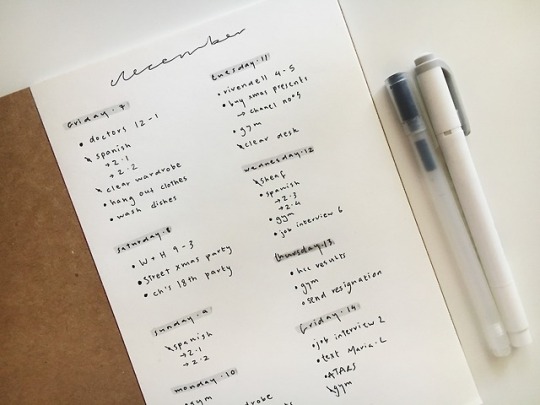 december
friday · 7
• doctors 12 - 1
spanish
→ 2.1
→ 2.2
clear wardrobe
• hang out clothes
• wash dishes
saturday · 8
• W + H 9 - 3
• Street xmas party
• ch's 18th party
sunday · 9
spanish
→ 2.1
→ 2.2
monday · 10
gym
tuesday · 11
• rivendell 4 - 5
• buy xmas presents
→ chanel no°5
• gym
clear desk
wednesday · 12
sheaf
• spanish
→ 2.3
→ 2.4
• gym
• job interview 6
thursday · 13
• hcc results
• gym
• send resignation
friday · 14
• job interview 2
• text Maria-L
• ATARS
gym